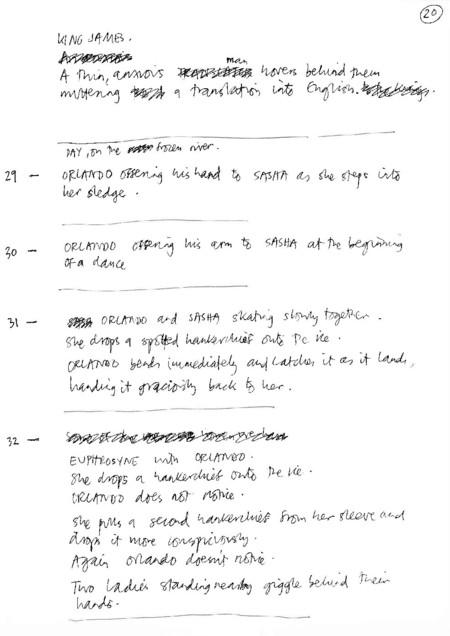 20
KING JAMES.
A thin, anxious man hovers behind them
muttering a translation into English.
DAY, on the frozen river.
29 — ORLANDO offering his hand to SASHA as she steps into
her sledge.
30 — ORLANDO offering his arm to SASHA at the beginning
of a dance
31 — ORLANDO and SASHA skating slowly together.
She drops a spotted hankerchief onto the ice.
ORLANDO bends immediately and catches it as it lands,
handing it graciously back to her.
32 —
EUPHROSYNE with ORLANDO.
She drops a hankerchief onto the ice.
ORLANDO does not notice.
She pulls a second hankerchief from her sleeve and
drops it more conspiciously.
Again Orlando doesn't notice.
Two ladies standing nearby giggle behind their
hands.